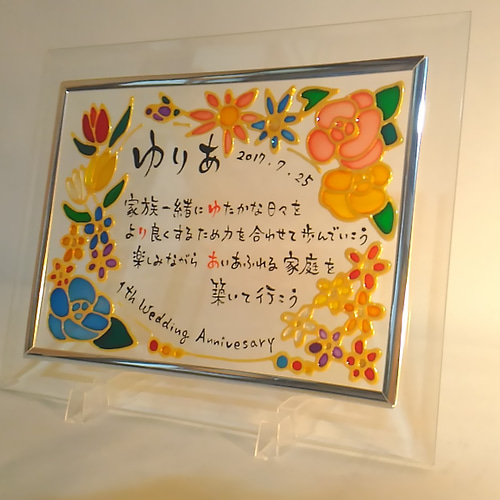 ゆりあ 2017.7.25
家族一緒にゆたかな日々を
より良くするため力を合わせて歩んでいこう
楽しみながら あいあふれる 家庭を
築いて行こう
1th Wedding Annivesary